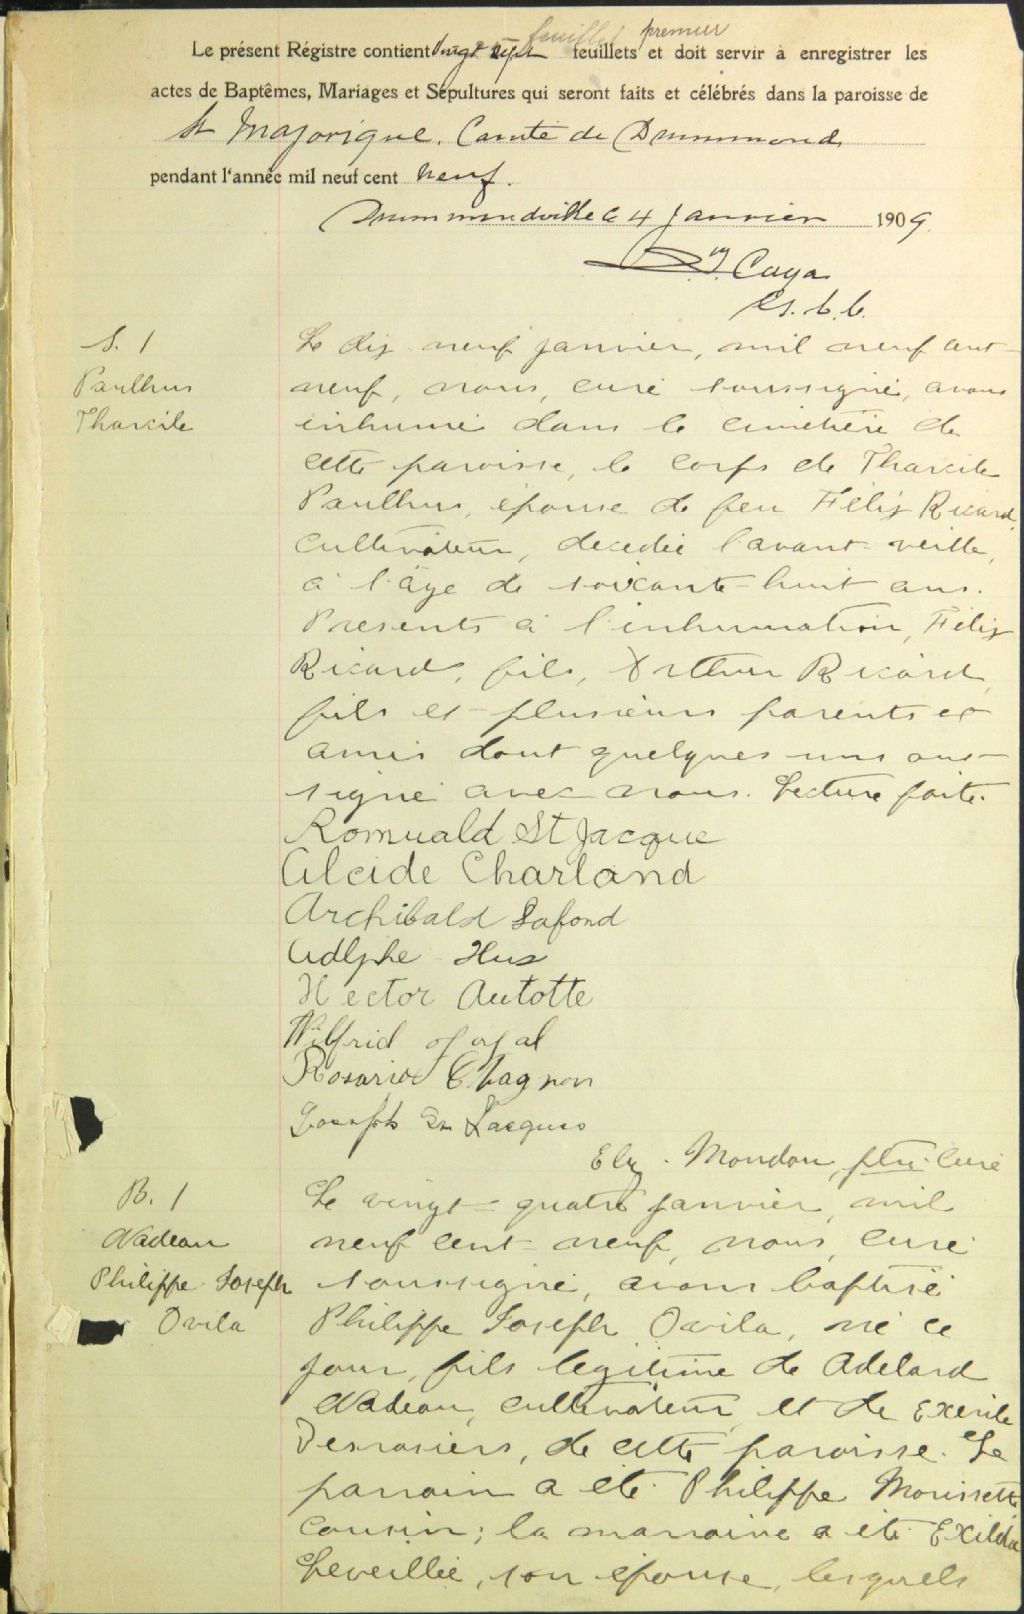 feuillet premier
Le présent Régistre contient vingt-sept feuillets et doit servir à enregistrer les
actes de Baptêmes, Mariages et Sépultures qui seront faits et célébrés dans la paroisse de
St Majorique, Comté de Drummond
pendant l'année mil neuf cent neuf.
Drummondville le 4 Janvier 1909.
Caya
S. 1
Paulhus
Tharcile
Le dix-neuf janvier, mil neuf cent-
neuf, nous, curé soussigné, avons
inhumé dans le cimetière de
cette paroisse, le corps de Tharcile
Paulhus, épouse de feu Félix Ricard,
cultivateur, décédée l'avant-veille,
à l'âge de soixante-huit ans.
Présents à l'inhumation, Félix
Ricard, fils, Arthur Ricard,
fils et plusieurs parents et
amis dont quelques uns ont
signé avec nous. Lecture faite.
Romuald St Jacque
Alcide Charland
Archibald Lafond
Adlphe Hus
Hector Autotte
Wilfrid
Rosario Chagnon
Joseph St Jacques
Elz. Mondou, ptre. curé
B. 1
Nadeau
Philippe Joseph
Ovila
Le vingt-quatre janvier, mil
neuf cent-neuf, nous, curé
soussigné, avons baptisé
Philippe Joseph Ovila, né ce
jour, fils légitime de Adelard
Nadeau, cultivateur et de Exerile
Desrosiers, de cette paroisse. Le
parrain a été Philippe Morissette
cousin; la marraine a été Exilda
Leveillée, son épouse, lesquels